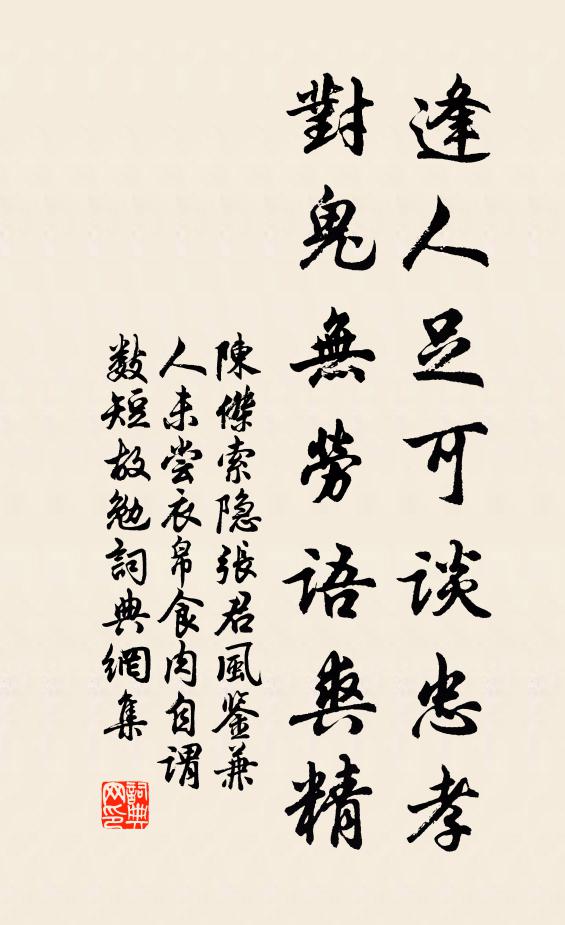 逢人足可談忠孝
對鬼無勞語爽精
陳傑索隐張君風鉴兼
人未尝衣帛食肉自謂
数短故勉詞典網集
詞典
网印